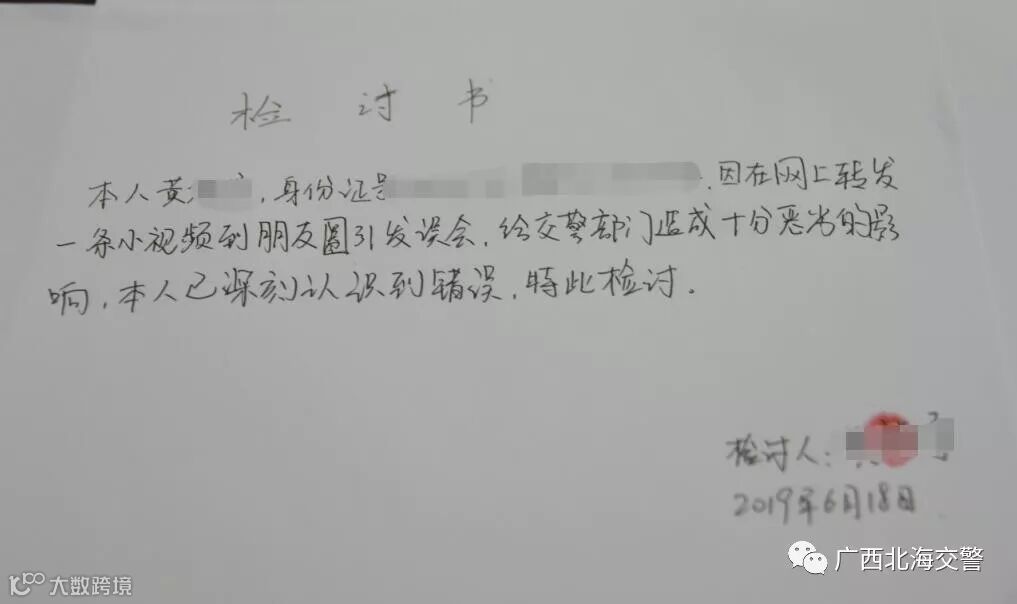 检 讨 书
本人黄 ,身份证号 ,因在网上转发
一条小视频到朋友圈引发误会,给交警部门造成十分恶劣的影
响,本人已深刻认识到错误,特此检讨.
检讨人:
2019年6月18日
广西北海交警
大数跨境